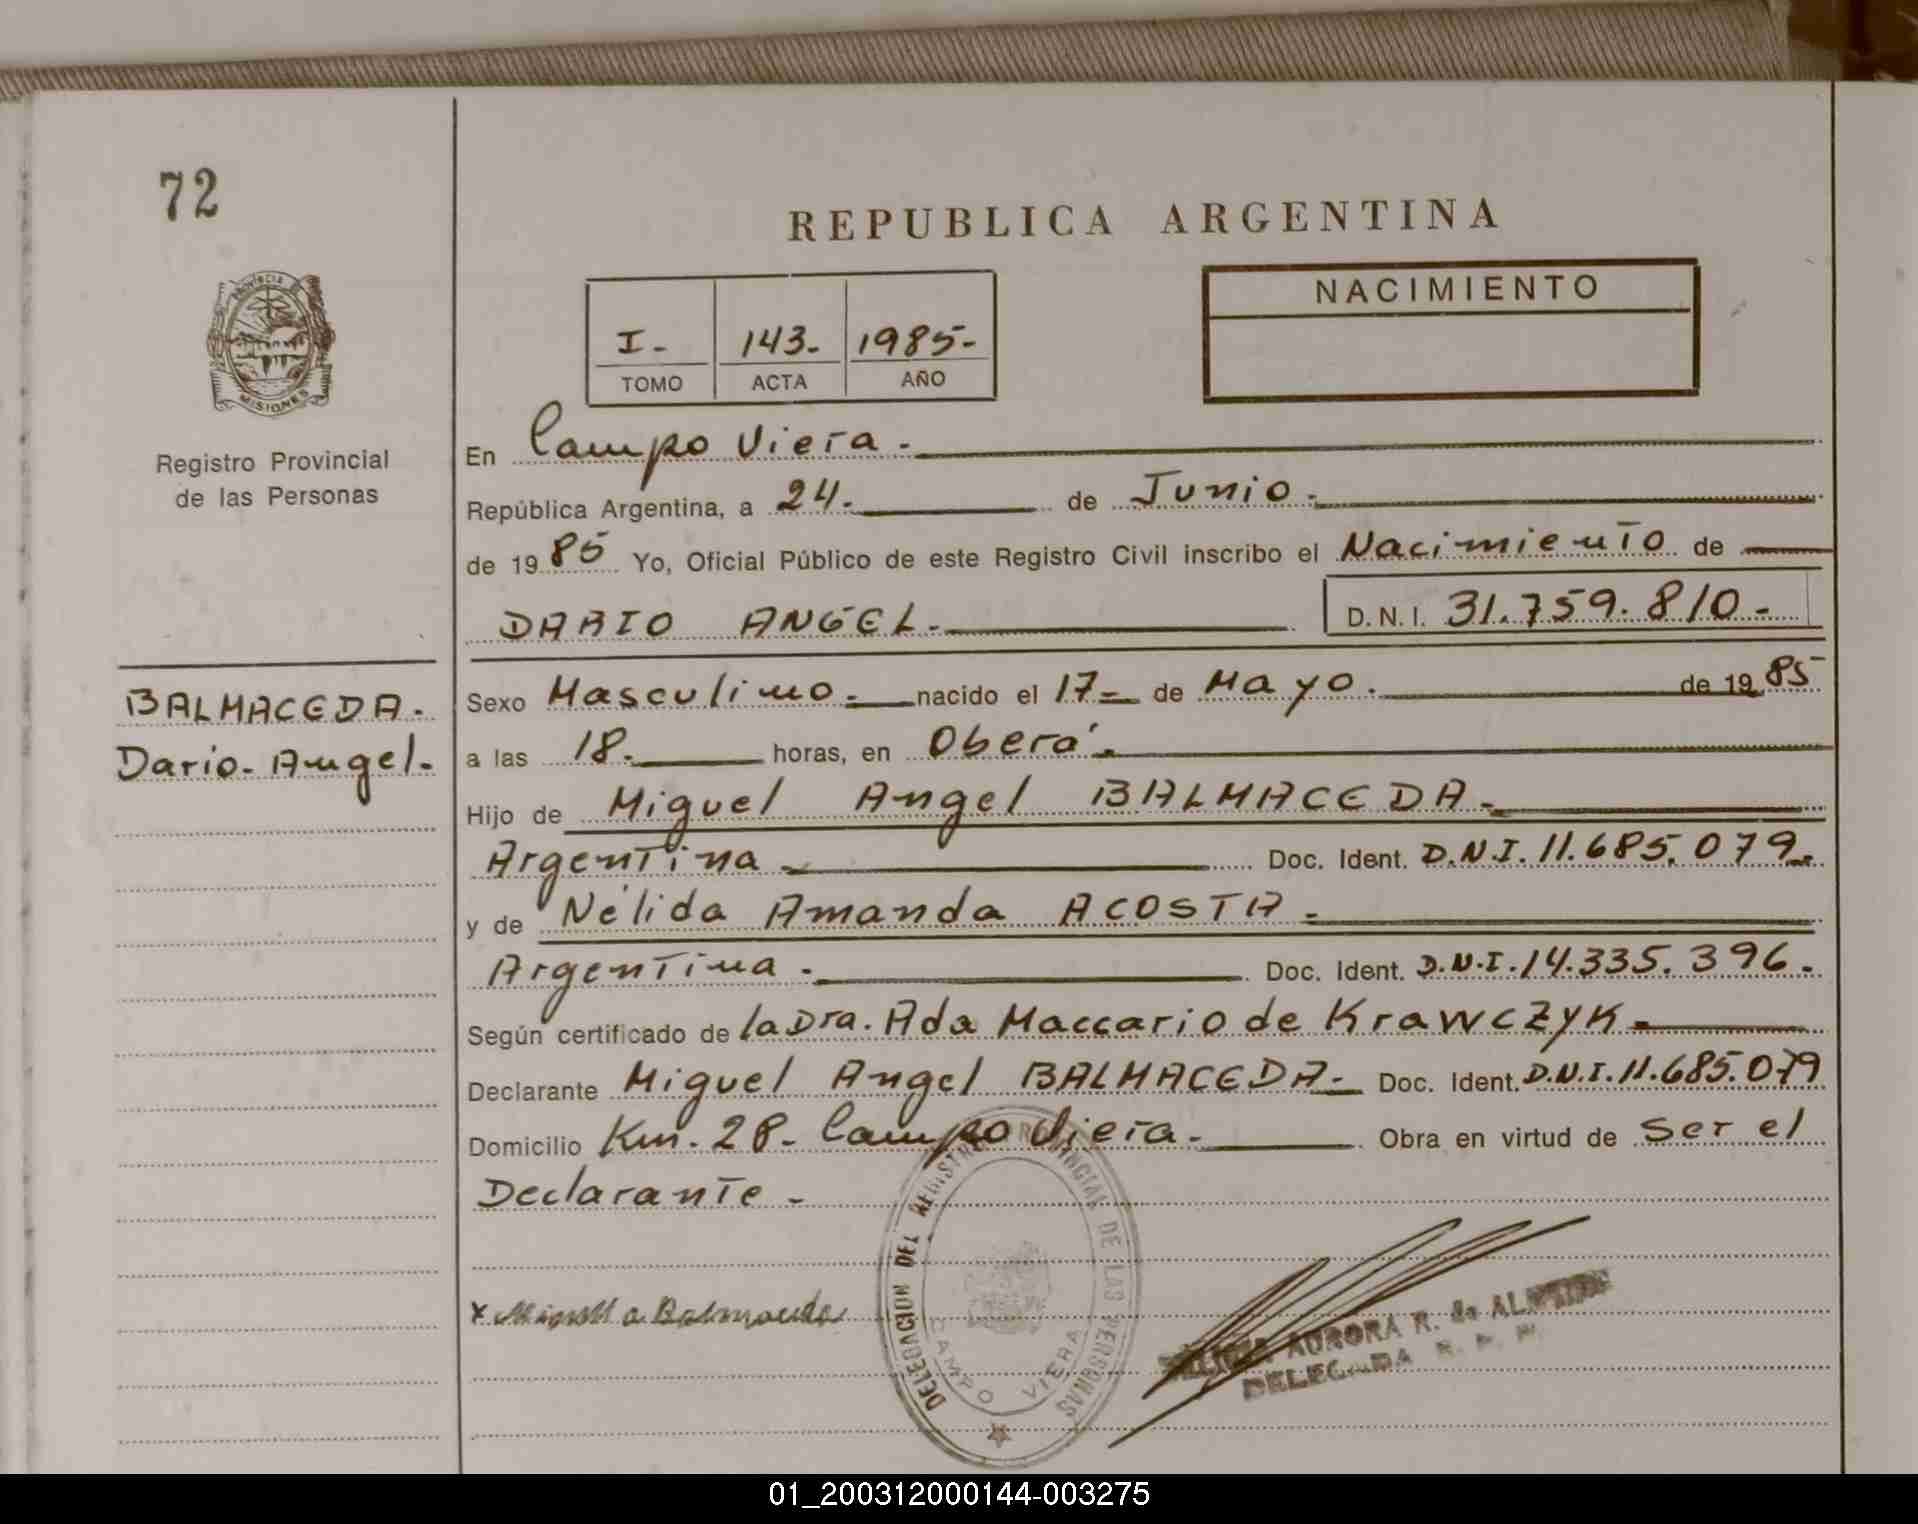 72
REPUBLICA ARGENTINA
PROVINCIA DE
MISIONES
Registro Provincial
de las Personas
I-
TOMO
143-
ACTA
1985-
AÑO
NACIMIENTO
En Campo Viera.
República Argentina, a 24. de Junio.
de 1985 Yo, Oficial Público de este Registro Civil inscribo el Nacimiento de
DARIO ANGEL. D.N.I. 31.759.810.-
BALMACEDA.
Dario Angel.
Sexo Masculino. nacido el 17 de Mayo. de 1985
a las 18. horas, en Oberá.
Hijo de Miguel Angel BALMACEDA.
Argentina Doc. Ident. D.N.I. 11.685.079.
y de Nélida Amanda ACOSTA.
Argentina. Doc. Ident. D.N.I. 14.335.396.
Según certificado de la Dra. Ada Maccario de Krawczyk
Declarante Miguel Angel BALMACEDA Doc. Ident. D.N.I. 11.685.079
Domicilio Km. 28- Campo Viera. Obra en virtud de Ser el
Declarante-
DELEGACION DEL REGISTRO PROVINCIAL DE LAS PERSONAS
CAMPO VIERA
x Miguel A Balmaceda
AURORA R. de
DELEGADA R. P. P.
01_200312000144-003275